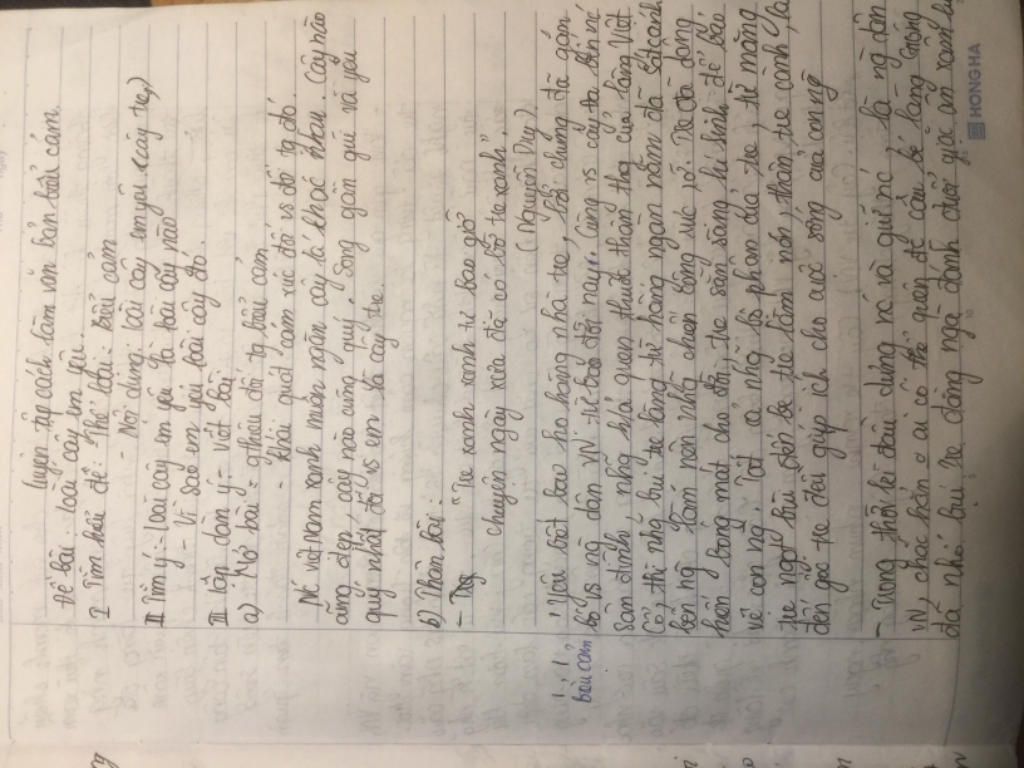 Luyện tập cách làm văn bản biểu cảm.
Đề bài: loài cây em yêu.
I Tìm hiểu đề: - Thể loại: Biểu cảm
- Nội dung: loài cây em yêu (cây tre)
II Tìm ý: - loài cây em yêu là loài cây nào
- Vì sao em yêu loài cây đó.
III lập dàn ý - viết bài
a) Mở bài: - gthiệu đối tg biểu cảm
- khái quát cảm xúc đối vs đố tg đó.
Nc việt nam xanh muôn ngàn cây lá khác nhau. Cây nào
cũng đẹp, cây nào cũng quý. Song gần gũi và yêu
quý nhất đối vs em là cây tre.
b) Thân bài:
- "Tre xanh xanh tự bao giờ
Chuyện ngày xưa đã có bờ tre xanh"
(Nguyễn Duy)
biểu cảm
bó vs ng dân VN từ bao đời nay. Cùng vs cây đa, bến nc
sân đình, những h/ả quen thuộc thân thg của làng Việt
cổ, thì nhg bụi tre làng từ hàng ngàn năm đã
bên ng
bóng mát cho đời, tre sẵn sàng hi sinh để bảo
vệ con ng. Tất cả nhg bộ phận của tre, từ măng
tre ngọt bùi đến bẹ tre làm nón, thân tre cành lá
đến gốc tre đều giúp ích cho cuộc sống của con ng
- Trong thời kì đầu dựng nc và giữ nc là ng dân
VN, chắc hẳn ai có thể quên đc cậu bé làng Gióng
đã nhổ bụi tre đằng ngà đánh đuổi giặc ân xâm
HONG HA